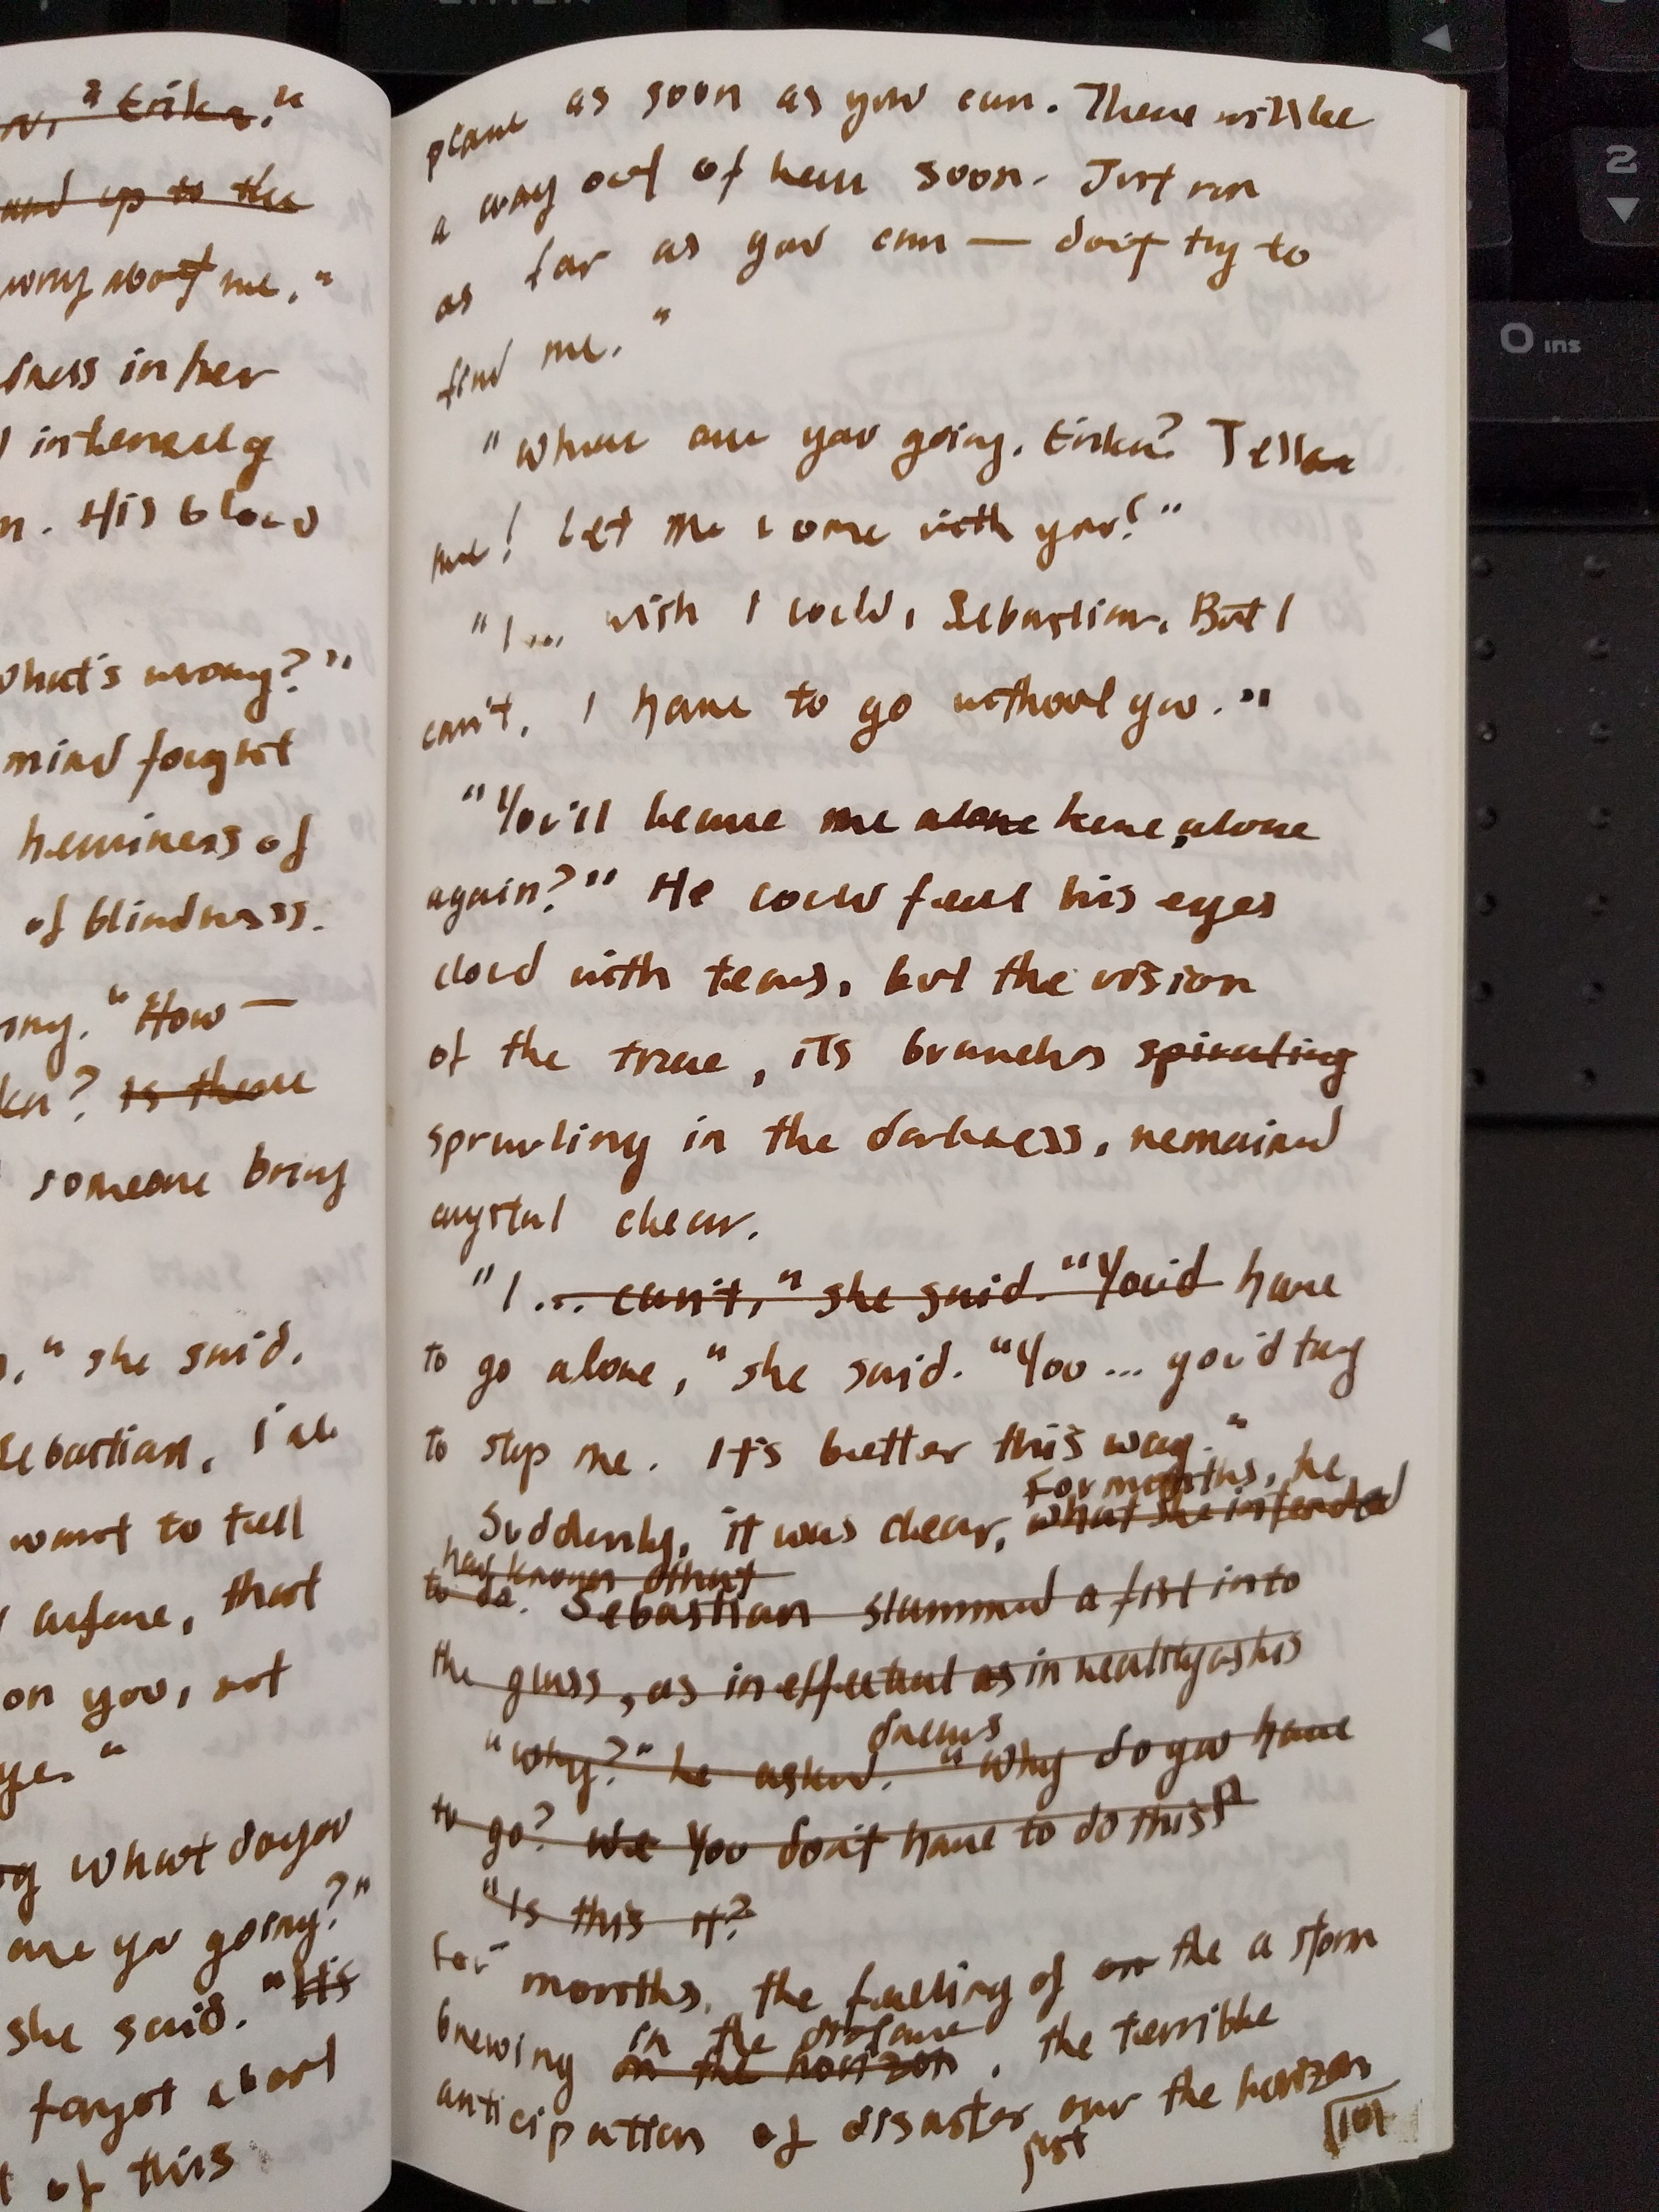 ENTER
2
0 ins
, "Erika."
and up to the
worry about me."
in her
intensely
. His blood
What's wrong?"
mind fought
heaviness of
of blindness.
. "How —
? Is there
someone bring
," she said.
Sebastian, I
want to tell
, that
on you, not
"
what do you
are you going?"
she said. "It's
forgot about
of this
place as soon as you can. There will be
a way out of here soon. Just run
as far as you can — don't try to
find me."
"Where are you going, Erika? Tell
me! Let me come with you!"
"I... wish I could, Sebastian. But I
can't. I have to go without you."
"You'll leave me alone here, alone
again?" He could feel his eyes
cloud with tears, but the vision
of the tree, its branches spiraling
sprawling in the darkness, remained
crystal clear.
"I... can't," she said. "You'd have
to go alone," she said. "You... you'd try
to stop me. It's better this way."
For months, he
Suddenly, it was clear, what she intended
had known that
to do. Sebastian slammed a fist into
the glass, as ineffectual as in reality as his
dreams
"Why?" he asked. "Why do you have
to go? We You don't have to do this!"
"Is this it?
For months, the feeling of on the a storm
in the distance
brewing on the horizon, the terrible
anticipation of disaster over the horizon
just
101